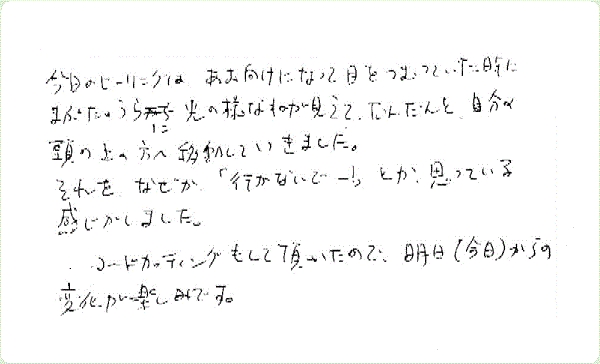 今日のヒーリングは あお向けになって目をつむっていた時に
まぶたのうらに光の様なものが見えて、だんだんと、自分の
頭の上の方へ移動していきました。
それを、なぜか「行かないでー!」とか、思っている
感じがしました。
コードカッティングもして頂いたので、明日(今日)からの
変化が楽しみです。